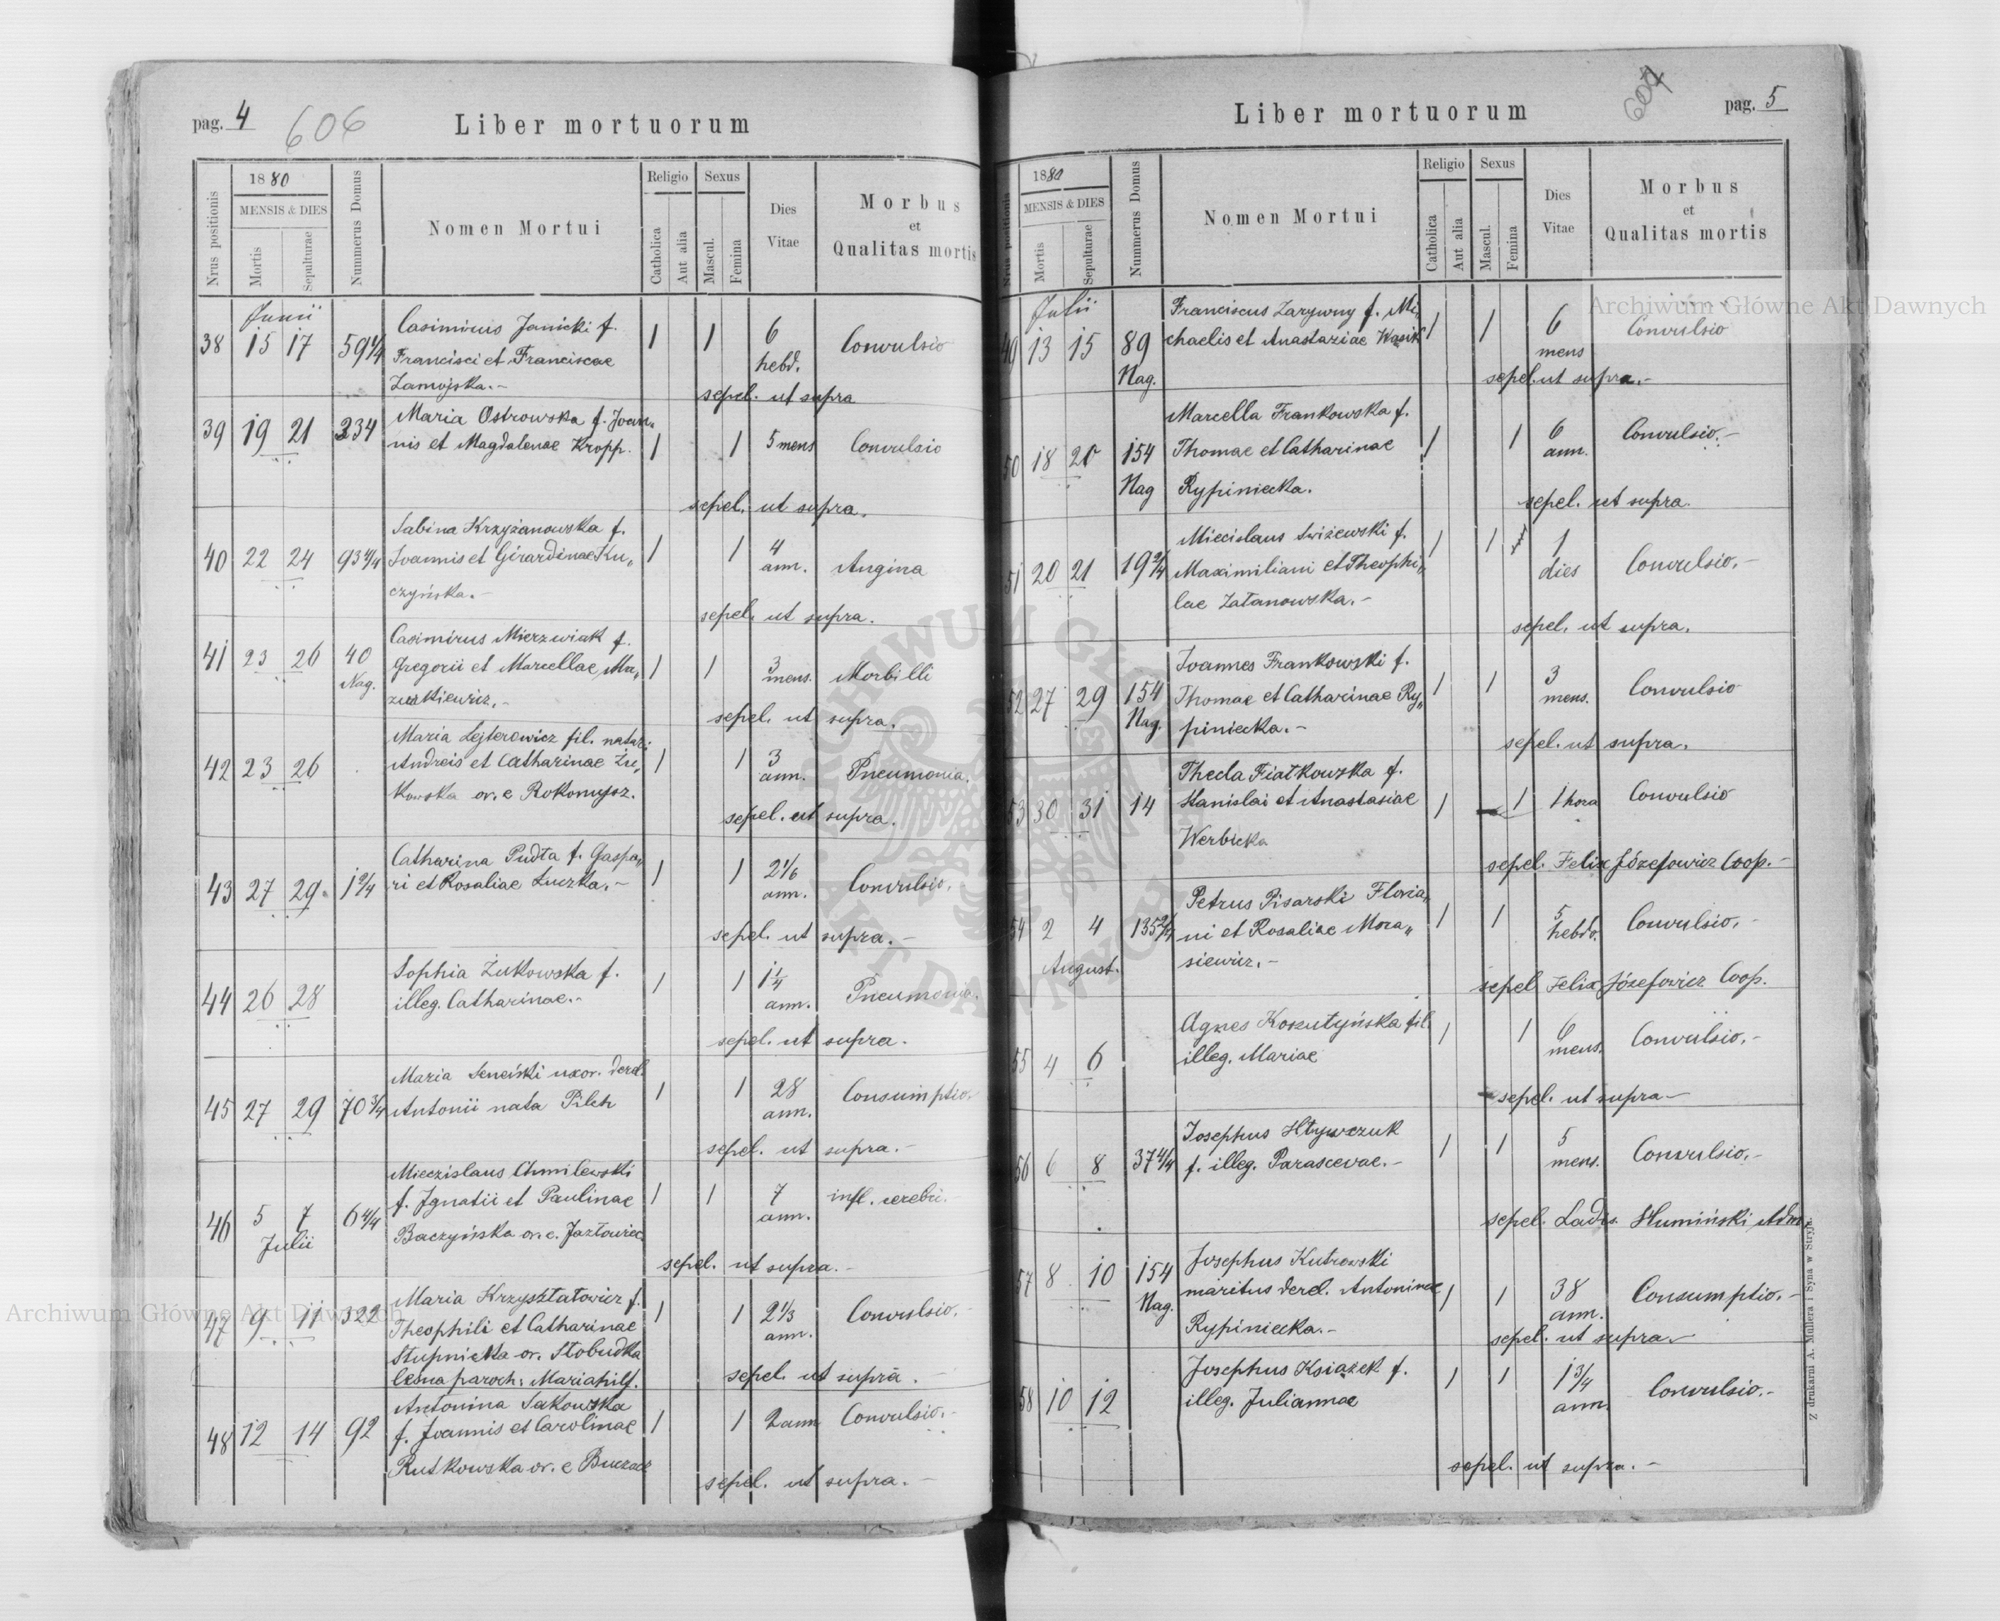 pag. 4
606
Liber mortuorum
Nrus positionis
1880
MENSIS & DIES
Mortis
Sepulturae
Nummerus Domus
Nomen Mortui
Religio
Catholica
Aut alia
Sexus
Mascul.
Femina
Dies
Vitae
Morbus
et
Qualitas mortis
Junii
38 15 17 59 1/4 Casimirus Janicki f. 1 1 6 hebd. Convulsio
Francisci et Franciscae
Zamojska.-
sepel. ut supra
39 19 21 334 Maria Ostrowska f. Joan„ 1 1 5 mens Convulsio
nis et Magdalenae Kropp.
sepel. ut supra.
40 22 24 93 4/4 Sabina Krzyżanowska f. 1 1 4 ann. Angina
Joannis et Girardinae Ku„
czyńska.-
sepel. ut supra.
41 23 26 40 Nag. Casimirus Mierzwiak f. 1 1 3 mens. Morbilli
Gregorii et Marcellae Ma„
zurkiewicz.-
sepel. ut supra.
42 23 26 Maria Lejterowicz fil. natur: 1 1 3 ann. Pneumonia.
Andreis et Catharinae Żu„
kowska or. e Rokomysz.
sepel. ut supra.
43 27 29 1 2/4 Catharina Pudta f. Gaspa„ 1 1 2 1/6 ann. Convulsio.
ri et Rosaliae Łuczka.-
sepel. ut supra.-
44 26 28 Sophia Żukowska f. 1 1 1 1/4 ann. Pneumonia.
illeg. Catharinae.-
sepel. ut supra.
45 27 29 70 3/4 Maria Seneński uxor. derel. 1 1 28 ann. Consumptio.
Antonii nata Pilch
sepel. ut supra.-
46 5 7 Julii 6 4/4 Mieczislaus Chmilewski 1 1 7 ann. infl. cerebri.-
f. Ignatii et Paulinae
Baczyńska or. e. Jazłowiec.
sepel. ut supra.-
47 9 11 322 Maria Krzysztatowicz f. 1 1 2 1/3 ann. Convulsio.-
Theophili et Catharinae
Stupnicka or. Słobudka
leśna paroch: Mariahilf.
sepel. ut supra.-
48 12 14 92 Antonina Sakowska 1 1 2 ann Convulsio.-
f. Joannis et Carolinae
Rutkowska or. e Buczacz
sepel. ut supra.-
pag. 5
Liber mortuorum
Nrus positionis
1880
MENSIS & DIES
Mortis
Sepulturae
Nummerus Domus
Nomen Mortui
Religio
Catholica
Aut alia
Sexus
Mascul.
Femina
Dies
Vitae
Morbus
et
Qualitas mortis
Julii
49 13 15 89 Nag. Franciscus Zarywny f. Mi„ 1 1 6 mens Convulsio
chaelis et Anastaziae Wasik
sepel. ut supra.-
50 18 20 154 Nag Marcella Frankowska f. 1 1 6 ann. Convulsio.-
Thomae et Catharinae
Rypiniecka.
sepel. ut supra.
51 20 21 19 2/4 Miecislaus Swiżewski f. 1 1 1 dies Convulsio.-
Maximiliani et Theophi„
lae Zatanowska.-
sepel. ut supra.
52 27 29 154 Nag. Joannes Frankowski f. 1 1 3 mens. Convulsio
Thomae et Catharinae Ry„
piniecka.-
sepel. ut supra.
53 30 31 14 Thecla Fiatkowska f. 1 1 1 hora Convulsio
Stanislai et Anastasiae
Werbicka
sepel. Felix Józefowicz Coop.-
54 2 4 August. 135 2/4 Petrus Pisarski Floria„ 1 1 5 hebdo. Convulsio.
ni et Rosaliae Mora„
siewicz.-
sepel Felix Józefowicz Coop.
55 4 6 Agnes Koszutyńska fil. 1 1 6 mens. Convulsio.-
illeg. Mariae
sepel. ut supra-
56 6 8 37 4/4 Josephus Hływczuk 1 1 5 mens. Convulsio.-
f. illeg. Parascevae.-
sepel. Ladis. Humiński Adm.
57 8 10 154 Nag. Josephus Kutrowski 1 1 38 ann. Consumptio.-
maritus derel. Antoninae
Rypiniecka.-
sepel. ut supra.-
58 10 12 Josephus Ksiażek f. 1 1 1 3/4 ann Convulsio.-
illeg. Juliannae
sepel. ut supra.-
Z drukarni A. Müllera i Syna w Stryju
Archiwum Główne Akt Dawnych
Archiwum Główne Akt Dawnych
ARCHIWUM GŁÓWNE AKT DAWNYCH